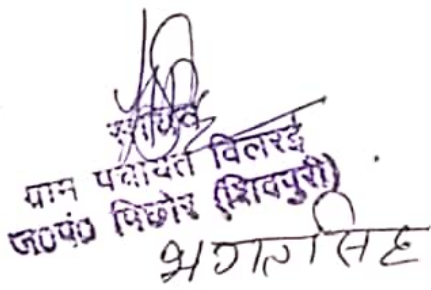 सचिव
ग्राम पंचायत विलरई
ज०पं० पिछोर (शिवपुरी)
भगतसिंह